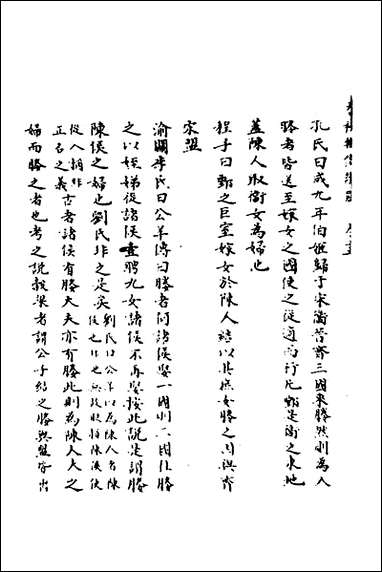 孔氏曰成九年伯姬歸于宋衞晉齊三國來媵然則為人
媵者皆送至嫁女之國使之從適而行凡鄄是衞之東地
蓋陳人取衞女為婦也
程子曰鄄之巨室嫁女於陳人結以其庶女媵之因與齊
宋盟
渝關李氏曰公羊傳曰媵者何諸侯娶一國則二國往媵
之以姪娣從諸侯壹聘九女諸侯不再娶按此說是謂媵
陳侯之婦也劉氏非之是矣劉氏曰公羊以為陳人者陳
侯也非也無故貶稱陳侯使
從人稱非
正名之義古者諸侯有媵大夫亦有媵此則為陳人大之
婦而媵之者也考之說穀梁者謂公子結之媵與盟皆出